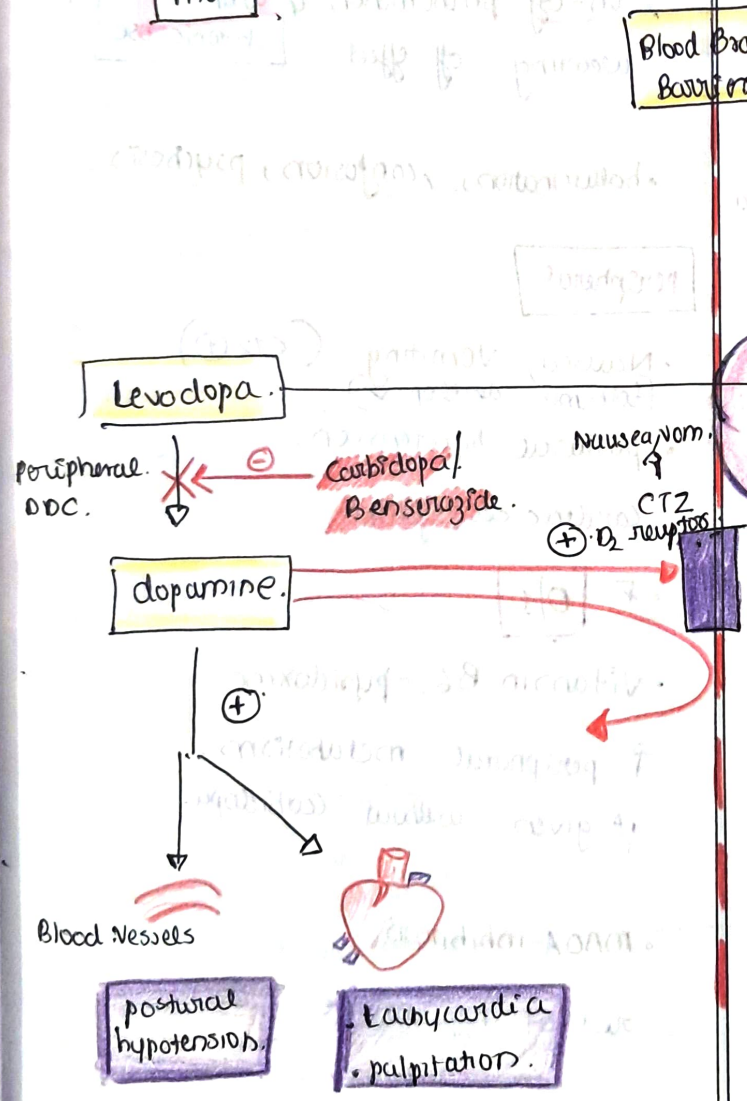 Blood
Barrier
Levodopa.
Nausea, vom.
Peripheral.
DDC.
⊖
Carbidopa/
Benserazide.
CTZ
⊕ D2 receptors
dopamine.
⊕
Blood Vessels
postural
hypotension.
. tachycardia
. palpitation.